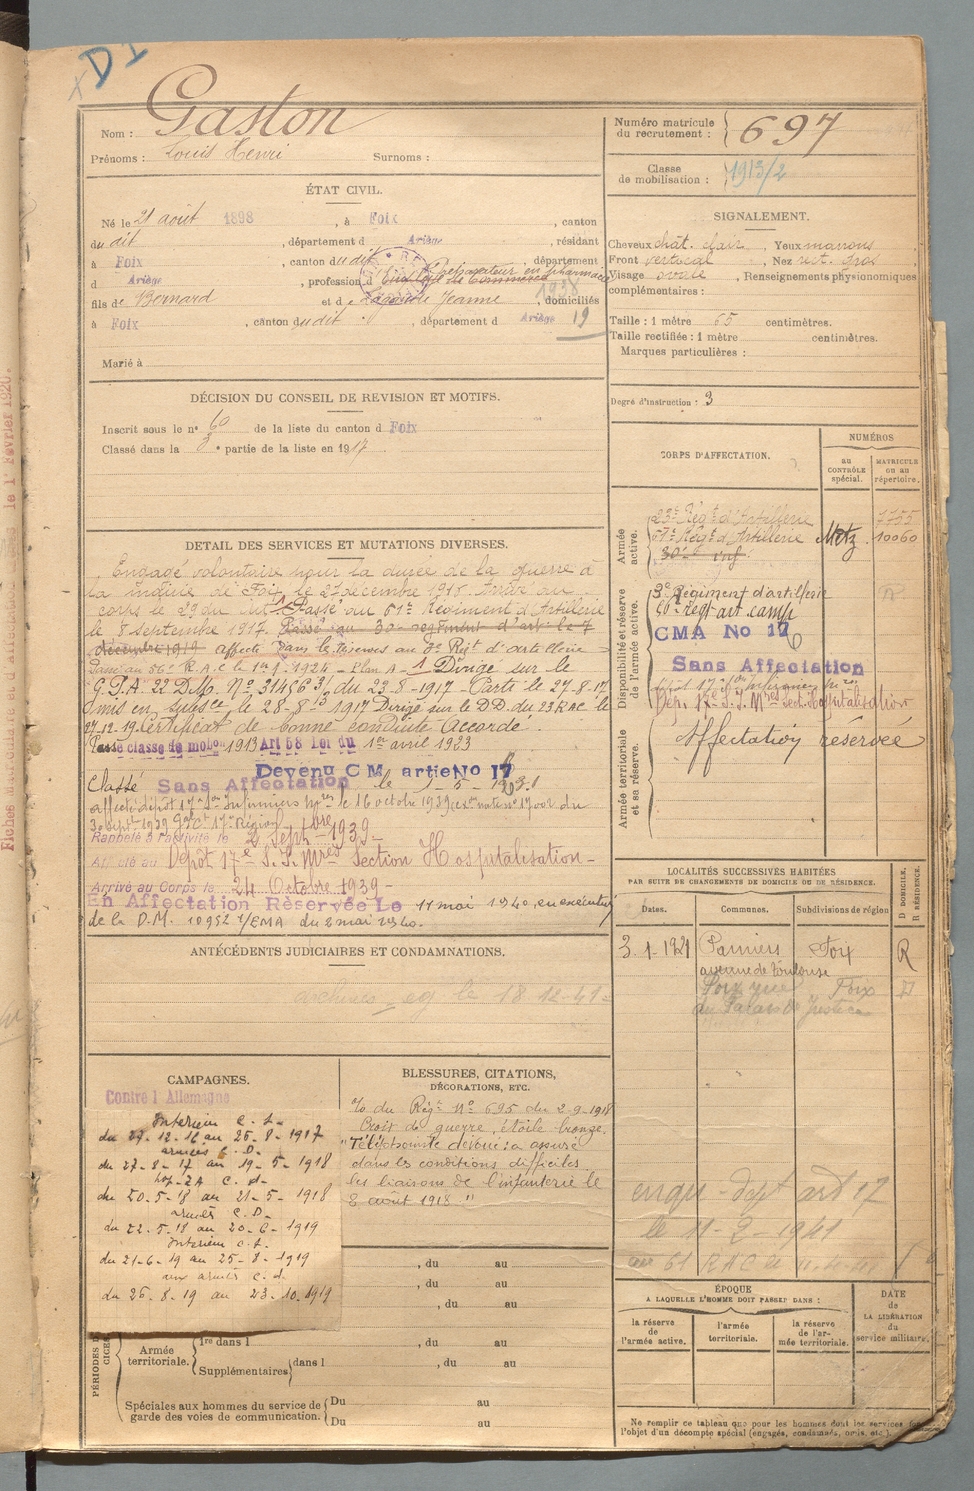 D I
Nom : Gaston
Prénoms : Louis Henri Surnoms :
Numéro matricule du recrutement : 697
Classe de mobilisation : 1913/2
ÉTAT CIVIL.
Né le 21 août 1898, à Foix, canton
du dit, département d Ariège, résidant
à Foix, canton du dit, département
d Ariège, profession d Préparateur en pharmacie
fils de Bernard et de Jeanne, domiciliés
à Foix, canton du dit, département d Ariège
1938
19
Marié à
SIGNALEMENT.
Cheveux chât. clair, Yeux marrons
Front vertical, Nez rect. gros
Visage ovale, Renseignements physionomiques
complémentaires :
Taille : 1 mètre 65 centimètres.
Taille rectifiée : 1 mètre centimètres.
Marques particulières :
Degré d'instruction : 3
DÉCISION DU CONSEIL DE REVISION ET MOTIFS.
Inscrit sous le n° 60 de la liste du canton d Foix
Classé dans la 3e partie de la liste en 1917
DÉTAIL DES SERVICES ET MUTATIONS DIVERSES.
Engagé volontaire pour la durée de la guerre à
la mairie de Foix, le 27 décembre 1916. Arrivé au
corps le 29 du dit. Passé au 61e Régiment d'Artillerie
le 8 septembre 1917. Passé au 30e régiment d'art. le 7
décembre 1919 affecté dans les réserves au 3e Régt d'artillerie
Passé au 56e R.A.C. le 1er 1.1924 - Plan A - 1 Dirigé sur le
G.P.A. 22 D.M. No 31456 3/3 du 23-8-1917 - Parti le 27-8-17
mis en subsce le 28-8-1917 Dirigé sur le D.D. du 23 RAC le
27.12.19. Certificat de bonne conduite Accordé.
Passé classe de mobon 1913 Art 58 Loi du 1er avril 1923
Devenu C M artie No 17
Classé Sans Affectation le 1-5-
affecté dépôt 17e Son Infirmiers Mres le 16 octobre 1939
Rappelé à l'activité le 2 Septbre 1939 -
Affecté au Dépôt 17e S.I. Mres Section Hospitalisation -
Arrivé au Corps le 24 Octobre 1939 -
En Affectation Réservée Le 11 mai 1940, en exécution
de la D.M. 10952 1/EMA du 2 mai 1940.
CORPS D'AFFECTATION.
NUMÉROS
au CONTRÔLE spécial.
MATRICULE ou au répertoire.
Armée active.
23e Régt d'Artillerie 1755
61e Régt d'Artillerie 10060
30e
Disponibilité et réserve de l'armée active.
3e Régiment d'artillerie
56e régt art camp
CMA No 17
Sans Affectation
Dépôt 17e Son Infirmiers Mres
Dép. 17e S.I. Mres Sect. Hospitalisation
Armée territoriale et sa réserve.
Affectation réservée
ANTÉCÉDENTS JUDICIAIRES ET CONDAMNATIONS.
le 18.12.41
LOCALITÉS SUCCESSIVES HABITÉES
PAR SUITE DE CHANGEMENTS DE DOMICILE OU DE RÉSIDENCE.
Dates. Communes. Subdivisions de région
D DOMICILE. R RÉSIDENCE.
3.1.1921 Pamiers Foix R
avenue de Toulouse
Foix rue Foix D
du Palais de Justice
le 11-2-1941
CAMPAGNES.
Contre l Allemagne
Intérieur C.S.
du 29-12-16 au 26-8-1917
armées C.D.
du 27-8-17 au 19-5-1918
C.S.
du 20.5.18 au 21-5-1918
armées C.D.
du 22.5.18 au 20-6-1919
Intérieur C.S.
du 21-6-19 au 25-8-1919
aux armées C.S.
du 26.8.19 au 23.10.1919
BLESSURES, CITATIONS,
DÉCORATIONS, ETC.
% du Régt No 695 du 2-9-1918
Croix de guerre, étoile bronze.
"Téléphoniste dévoué : a assuré
dans les conditions difficiles
les liaisons de l'infanterie le
8 août 1918."
, du au
, du au
, du au
Armée territoriale.
1re dans l , du au
Supplémentaires dans l , du au
Spéciales aux hommes du service de garde des voies de communication.
Du au
Du au
ÉPOQUE
A LAQUELLE L'HOMME DOIT PASSER DANS :
la réserve de l'armée active.
l'armée territoriale.
la réserve de l'armée territoriale.
DATE de LA LIBÉRATION du service militaire.
Ne remplir ce tableau que pour les hommes dont les services
l'objet d'un décompte spécial (engagés, condamnés, omis, etc.).